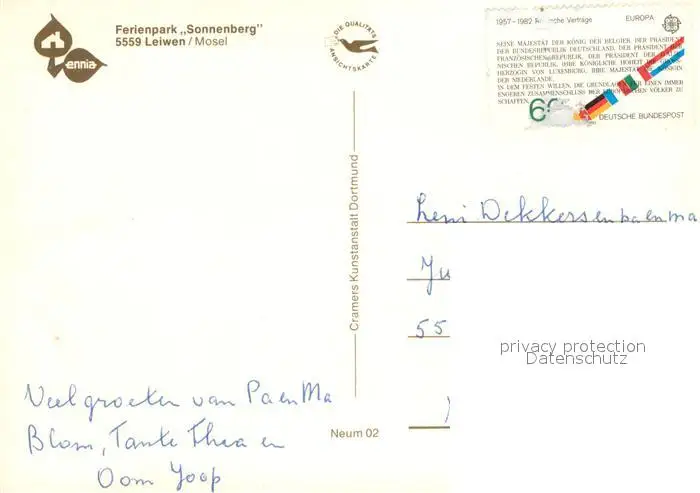 ennia
Ferienpark „Sonnenberg"
5559 Leiwen / Mosel
DIE QUALITÄTS
ANSICHTSKARTE
1957-1982 Römische Verträge EUROPA
SEINE MAJESTÄT DER KÖNIG DER BELGIER, DER PRÄSIDENT
DER BUNDESREPUBLIK DEUTSCHLAND, DER PRÄSIDENT DER
FRANZÖSISCHEN REPUBLIK, DER PRÄSIDENT DER ITALIENISCHEN
REPUBLIK, IHRE KÖNIGLICHE HOHEIT DIE GROSSHERZOGIN
VON LUXEMBURG, IHRE MAJESTÄT DIE KÖNIGIN
DER NIEDERLANDE,
IN DEM FESTEN WILLEN, DIE GRUNDLAGEN FÜR EINEN IMMER
ENGEREN ZUSAMMENSCHLUSS DER EUROPÄISCHEN VÖLKER ZU
SCHAFFEN,
60
DEUTSCHE BUNDESPOST
Cramers Kunstanstalt Dortmund
Leni Dekkers en pa en ma
Ju
55
privacy protection
Datenschutz
Veel groeten van Pa en Ma
Blom, Tante Thea en
Oom Joop
Neum 02